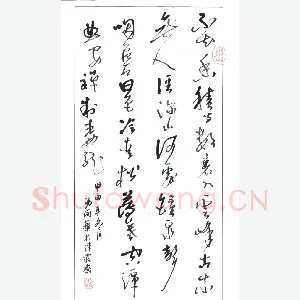 不知香积寺数里入云峰古木
无人径深山何处钟泉声
咽危石日色冷青松薄暮空潭
曲安禅制毒龙
Shufawang.CN